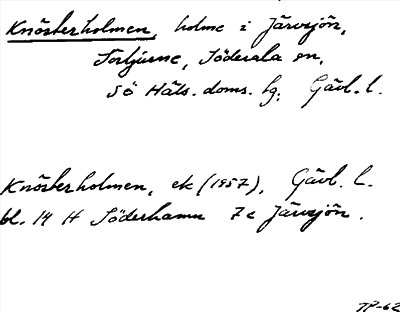 Knösterholmen, holme i Järvsjön,
Torljusne, Söderala sn,
Sö Häls. doms. hg. Gävl. l.
Knösterholmen, ek (1957), Gävl. l.
bl. 14 H Söderhamn 7c Järvsjön.
TP-62